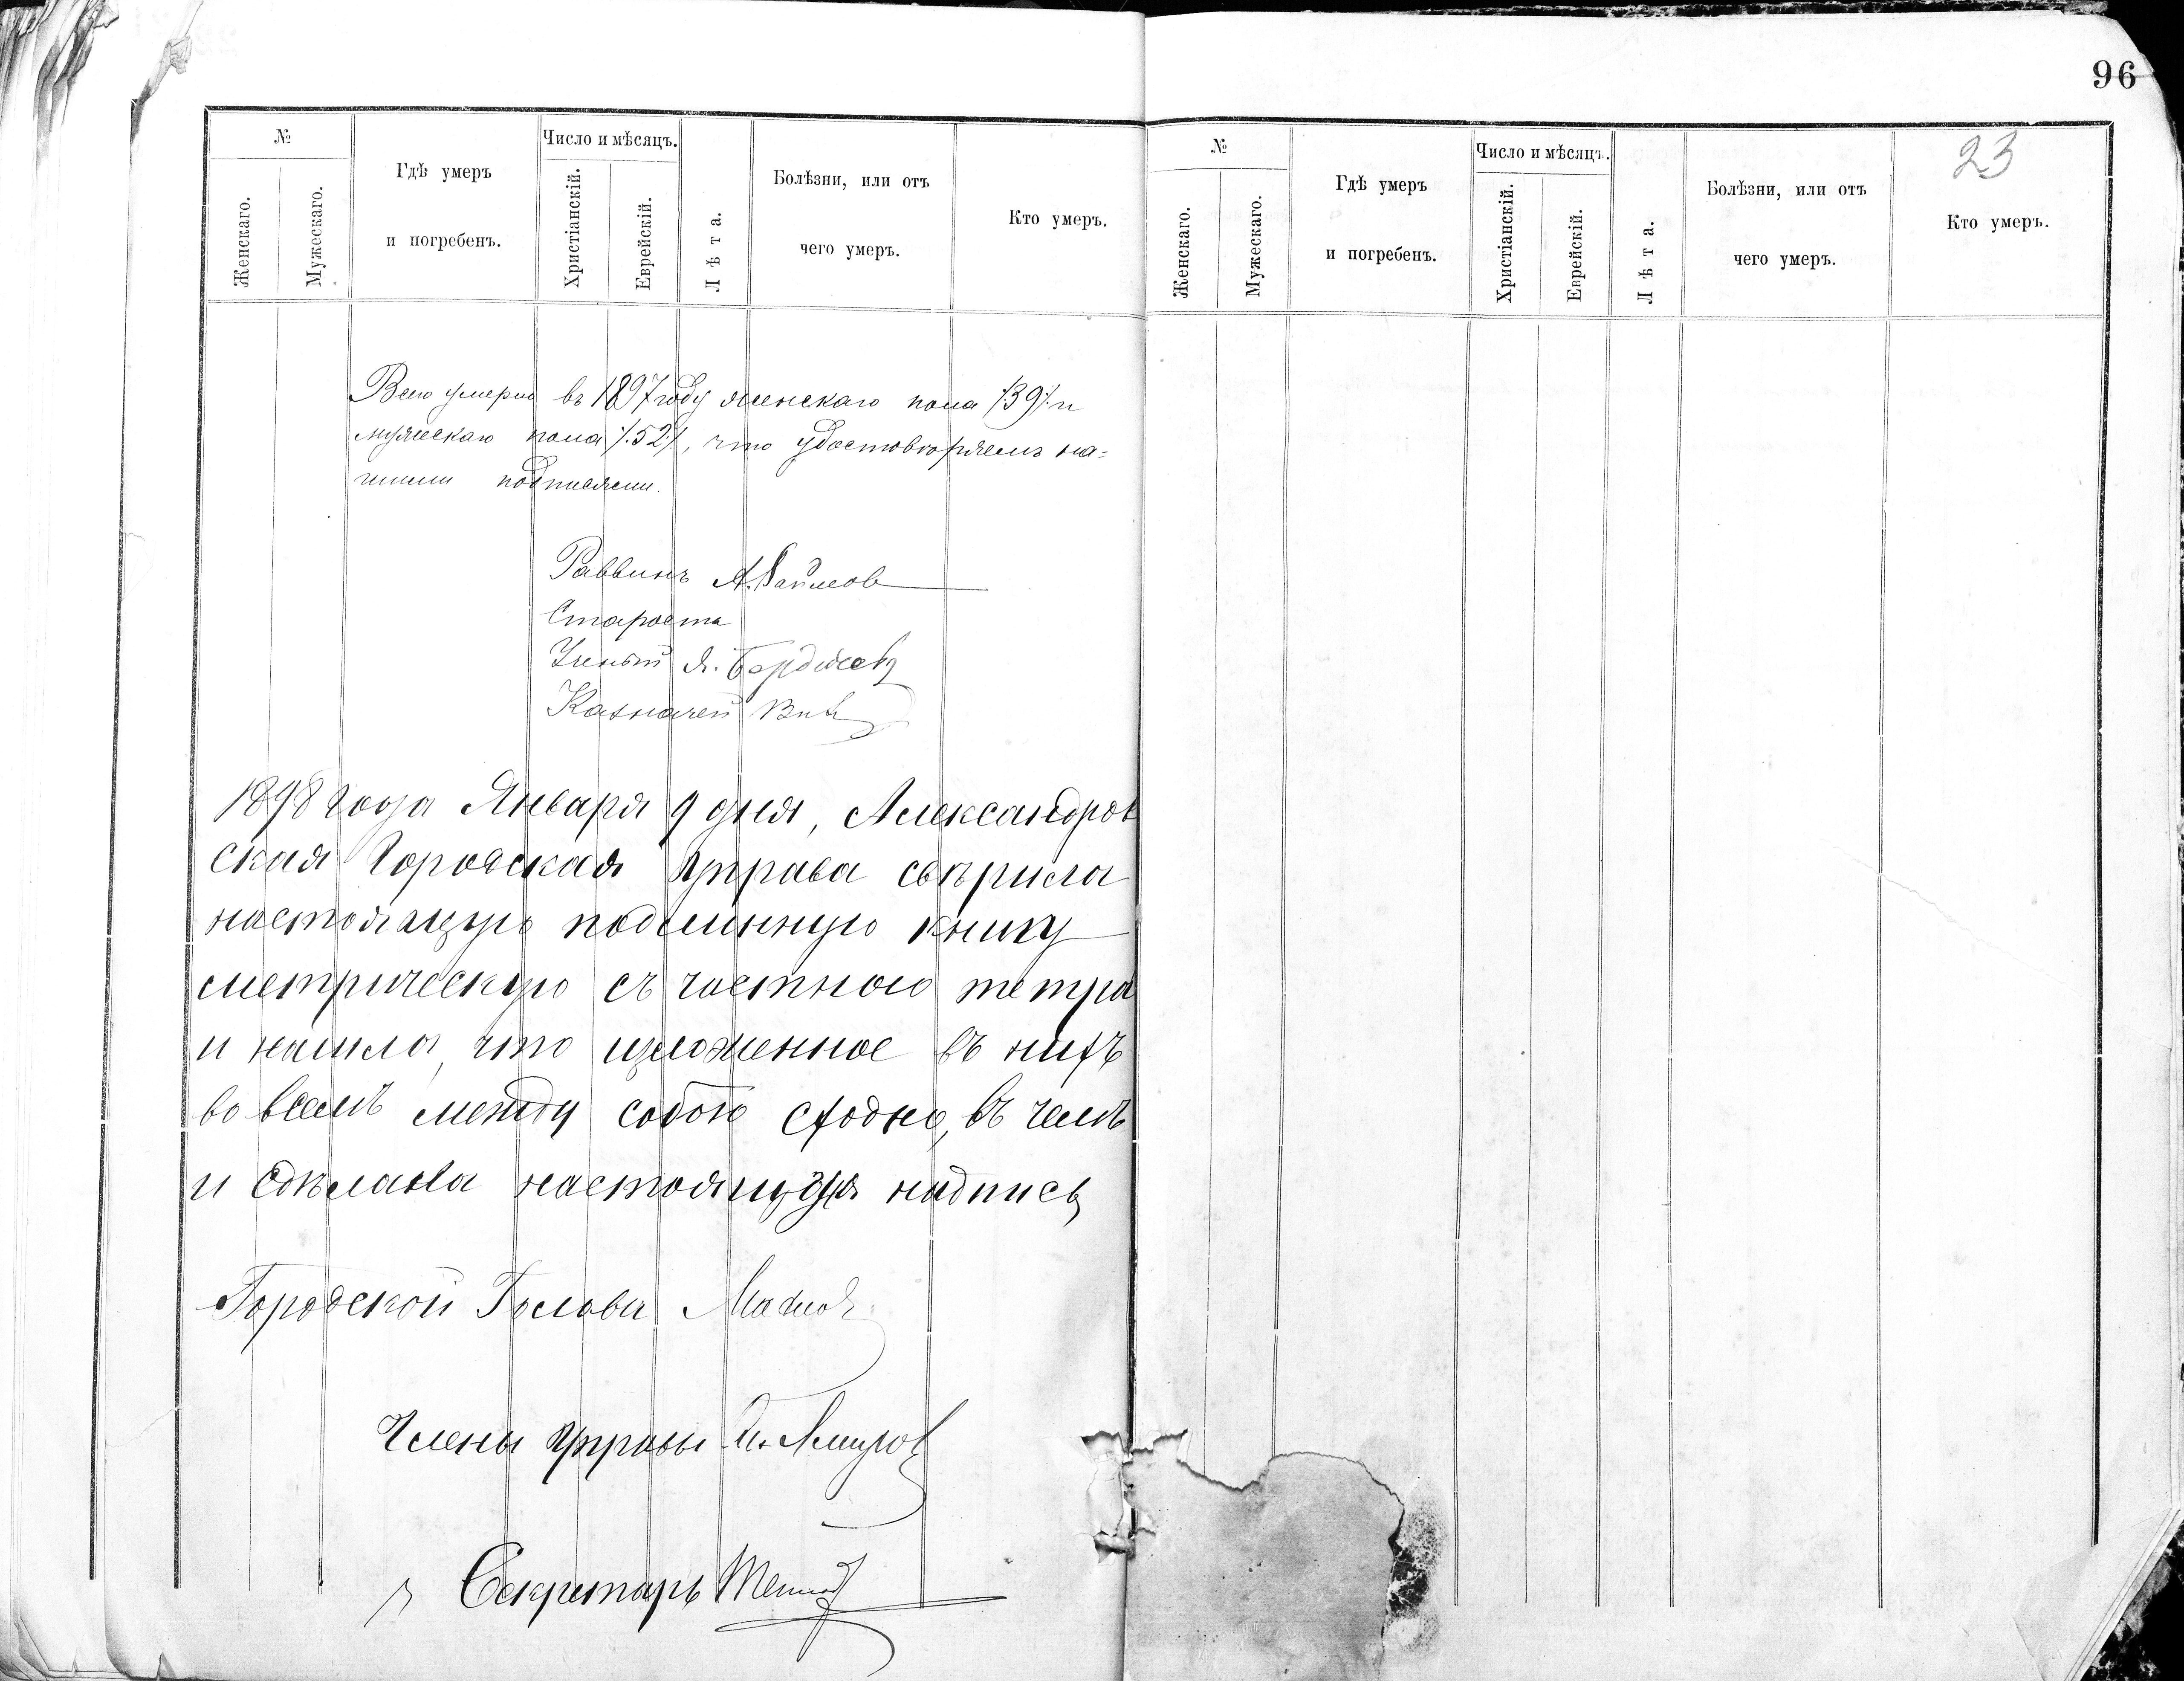 96
23
№
Женскаго.
Мужескаго.
Гдѣ умеръ
и погребенъ.
Число и мѣсяцъ.
Христіанскій.
Еврейскій.
Лѣта.
Болѣзни, или отъ
чего умеръ.
Кто умеръ.
Всего умерло въ 1897 году женскаго пола /39/. и
мужескаго пола /.52/., что удостовѣряемъ на=
шими подписями.
Раввинъ А.
Староста
Ученый Я.
Казначей
1898 года Января 9 дня, Александров
ская Городская Управа свѣрила
настоящую подлинную книгу
метрическую съ частною тетра
и нашла, что изложенное въ нихъ
во всемъ между собою сходно, въ чемъ
и сдѣлана настоящая надпись
Городской Голова
Члены Управы
Секретарь
№
Женскаго.
Мужескаго.
Гдѣ умеръ
и погребенъ.
Число и мѣсяцъ.
Христіанскій.
Еврейскій.
Лѣта.
Болѣзни, или отъ
чего умеръ.
Кто умеръ.